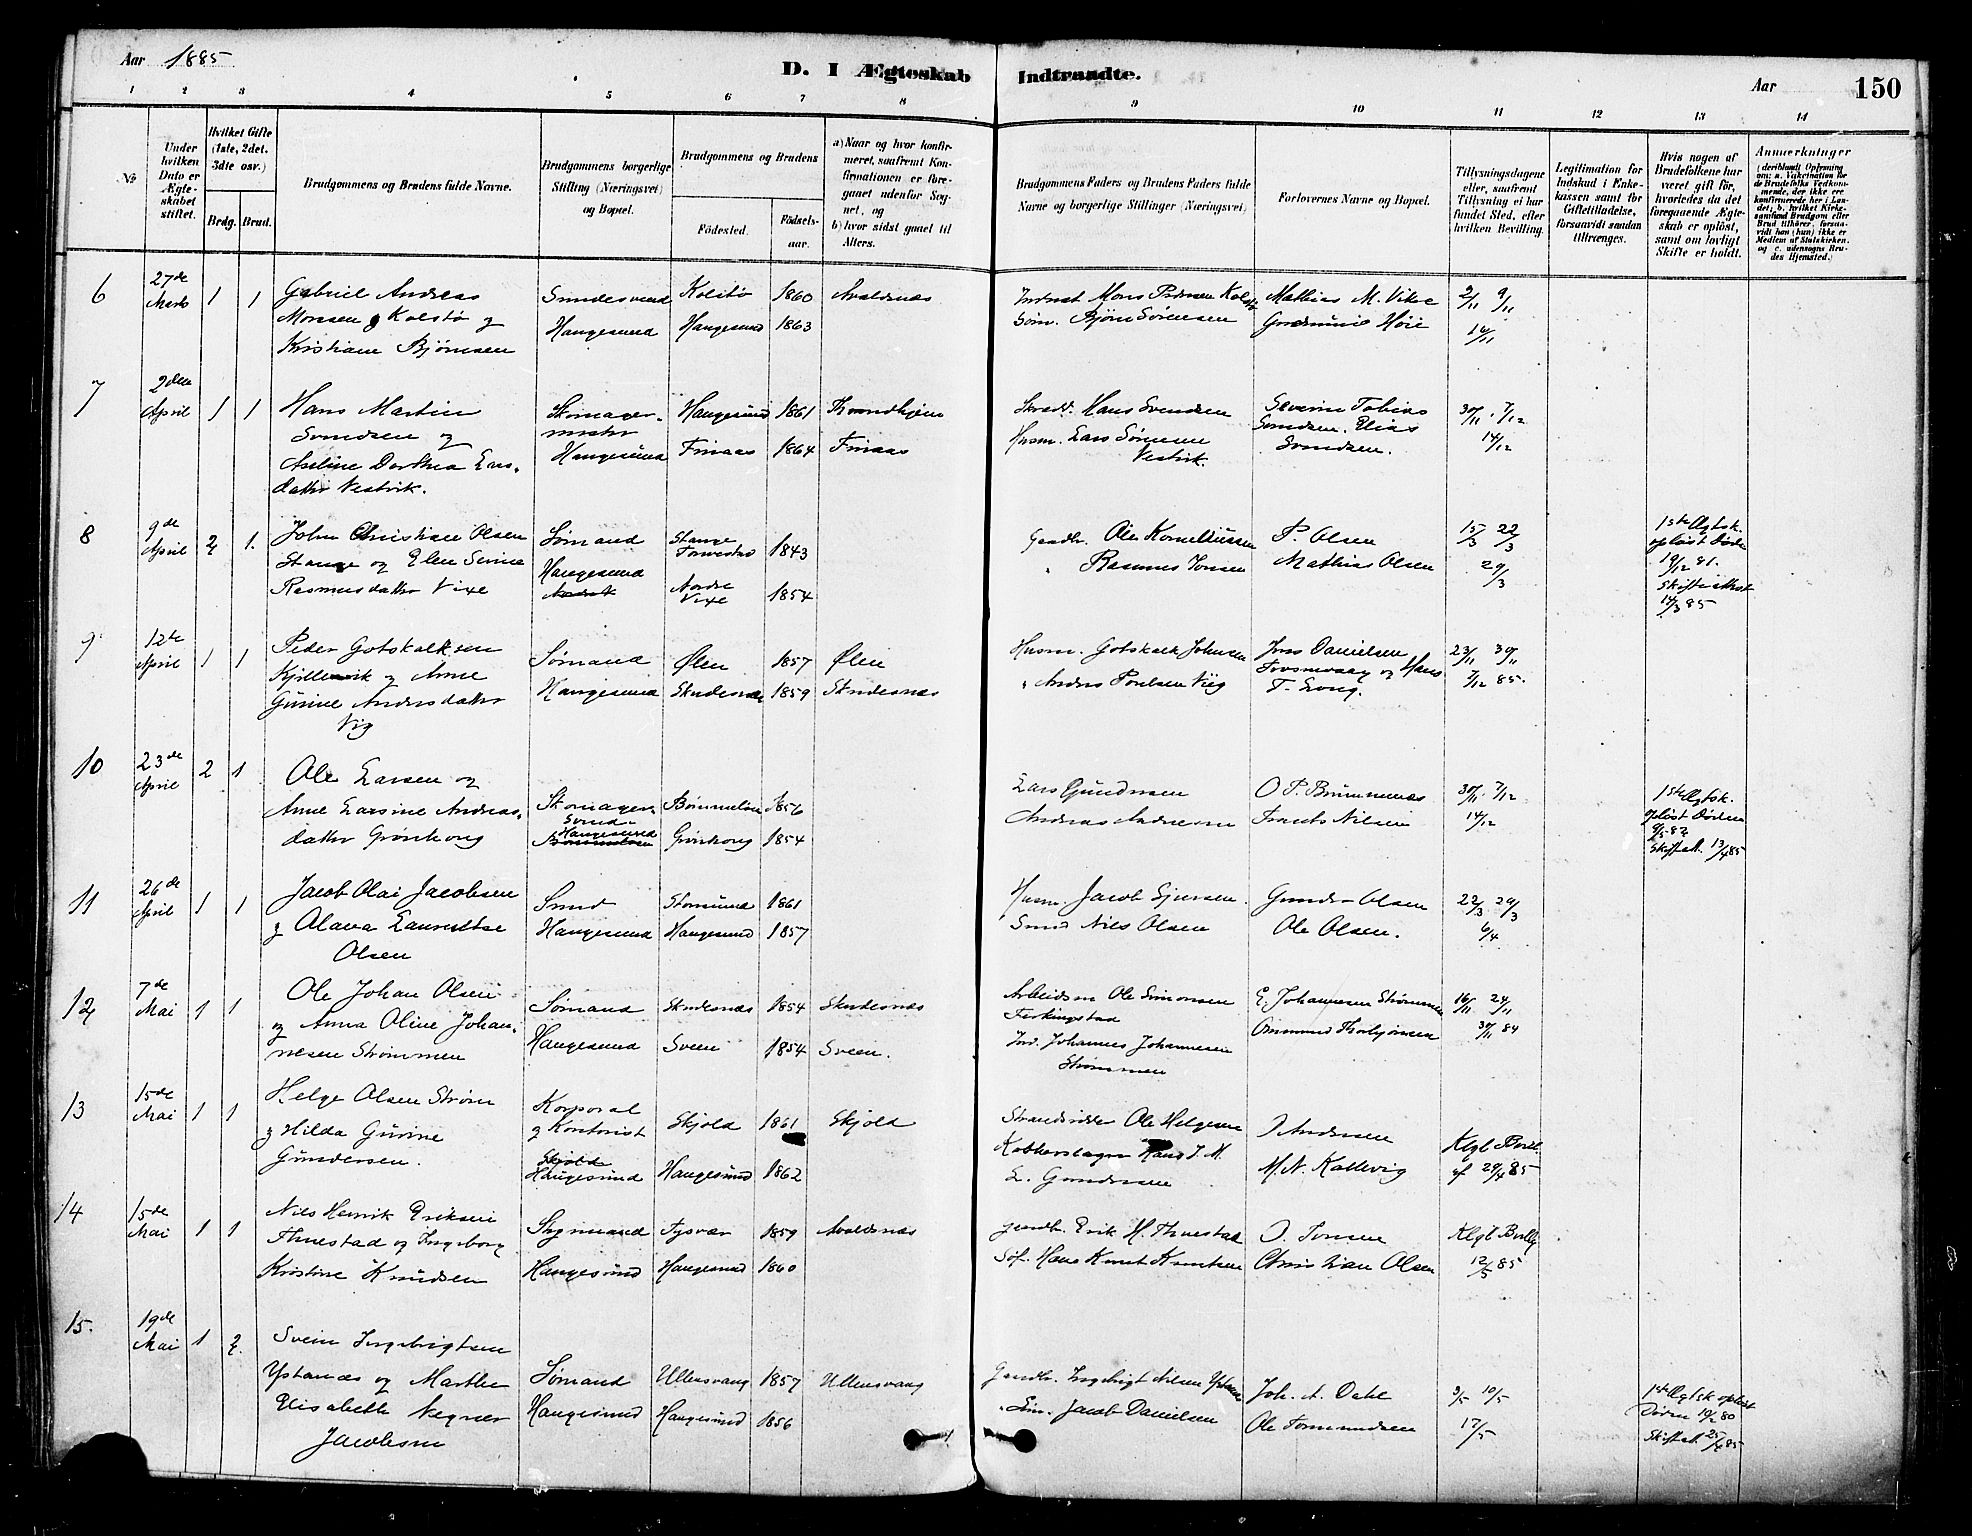 Aar 1885
D. I Ægteskab Indtraadte.
Aar
150
1 2 3 4 5 6 7 8 9 10 11 12 13 14
No
Under hvilken Dato er Ægteskabet stiftet.
Hvilket Gifte (1ste, 2det, 3dte osv.)
Brdg. Brud.
Brudgommens og Brudens fulde Navne.
Brudgommens borgerlige Stilling (Næringsvei) og Bopæl.
Brudgommens og Brudens
Fødested.
Fødselsaar.
a) Naar og hvor konfirmeret, saafremt Konfirmationen er foregaaet udenfor Sognet, og
b) hvor sidst gaaet til Alters.
Brudgommens Faders og Brudens Faders fulde Navne og borgerlige Stillinger (Næringsvei)
Forlovernes Navne og Bopæl.
Tillysningsdagene eller, saafremt Tillysning ei har fundet Sted, efter hvilken Bevilling.
Legitimation for Indskud i Enkekassen samt for Giftetilladelse, forsaavidt saadan tiltrænges.
Hvis nogen af Brudefolkene har været gift før, hvorledes da det foregaaende Ægteskab er opløst, samt om lovligt Skifte er holdt.
Anmærkninger
(deriblandt Oplysning om: a. Vakcination for de Brudefolks Vedkommende, der ikke ere konfirmerede her i Landet; b. hvilket Kirkesamfund Brudgom eller Brud tilhører, forsaavidt han (hun) ikke er Medlem af Statskirken, og c. udensogns Brudes Hjemsted.)
6 27de Marts 1 1
Gabriel Andreas
Monsen Kolstø og
Kristiane Bjørnsen
Haugesund
Kolstø 1860 Avaldsnæs
Haugesund 1863
Søm. Bjørn Sørensen
Mathias M. Vikse
2/11 9/11
16/11
7 2den April 1 1
Hans Martin
Svendsen og
Aseline Dorthea Lars-
datter Vestvik.
Skomager-
mester
Haugesund
Haugesund 1861 Throndhjem
Finaas 1864 Finaas
Skrædd. Hans Svendsen
Husm. Lars Sørensen
Vestvik.
Severin Tobias
Svendsen. Elias
Svendsen.
30/11 . 7/12
14/12
8 9de April 2 1.
John Christian Olsen
Stange og Elen Serine
Rasmusdatter Vixe
Sømand
Haugesund
Stange
1843
Nordre
Vixe 1854
Gaardbr. Ole Korneliussen
" Rasmus Jonsen
P. Olsen
Mathias Olsen
15/3 22/3
29/3
1ste Ægtsk.
opløst Døde
19/12 81.
Skifteattest
14/3 85
9 12te April 1 1
Peder Gotskalksen
Kjillesvik og Anne
Gurine Andersdatter
Vig
Sømand
Haugesund
Ølen 1857 Ølen
Skudesnæs 1859 Skudesnæs
Husm. Gotskalk Johnsen
" Anders Poulsen Viig
Jens Danielsen
og Hans
23/11 30/11
7/12 85.
10 23de April 2 1
Ole Larsen og
Anne Larsine Andreas-
datter Grønhong
Skomager-
Svend
Haugesund
Bømmeløen 1856
Grønhong 1854
Lars Gundersen
Andreas Andreasen
O P. Brummenæs
Frants Nilsen
30/11 . 7/12
14/12
1ste Ægtsk.
opløst Døden
Skifteatt. 13/4 85
11 26de April 1 1
Jacob Olai Jacobsen
g Olava Lauretse
Olsen
Smed
Haugesund
Storesund 1861
Haugesund 1857
Husm. Jacob Sjursen
Smed Nils Olsen
Gunder Olsen
Ole Olsen.
22/3 29/3
6/4
12 7de Mai 1 1
Ole Johan Olsen
og Anna Oline Johan-
nesen Strømmen
Sømand
Haugesund
Skudesnæs 1854 Skudesnæs
Sveen 1854 Sveen.
Arbeidsm Ole Simonsen
Ferkingstad
Ind. Johannes Johannesen
Strømmen
E. Johannesen Strømmen
Ommund Thorbjørnsen
16/11 24/11
30/11 84
13 15de Mai 1 1
Helge Olsen Strøm
g Hilda Gurine
Gundersen.
Korporal
og Kontorist
Skjold
Haugesund
Skjold 1861 Skjold
Haugesund 1862
Strandsidder Ole Helgesen
Kobberslager Hans J. M.
L. Gundersen
O Andersen
M. N. Kallevig
Klgl Bevil.
af 29/4 85
14 15de Mai 1 1
Nils Henrik Eriksen
Thuestad og Ingeborg
Kristine Knudsen
Styrmand
Haugesund
Tysvær 1859 Avaldsnæs
Haugesund 1860
Gaardbr. Erik H. Thuestad
Søf. Hans Knut Knutsen
O. Tonsen
Christian Olsen
Klgl Bevillg
12/5 85
15. 19de Mai 1 2.
Svein Ingebrigtsen
Ystanæs og Marthe
Elisabeth Negner
Jacobsen
Sømand
Haugesund
Ullensvang 1857 Ullensvang
Haugesund 1856
Gaardbr. Ingebrigt Nilsen Ystanæs
Jacob Danielsen
Joh. A. Dahl
Ole Tormundsen
3/5 10/5
17/5
1ste Ægtsk opløst
Døden 19/2 80
Skifteatt. 25/4 85